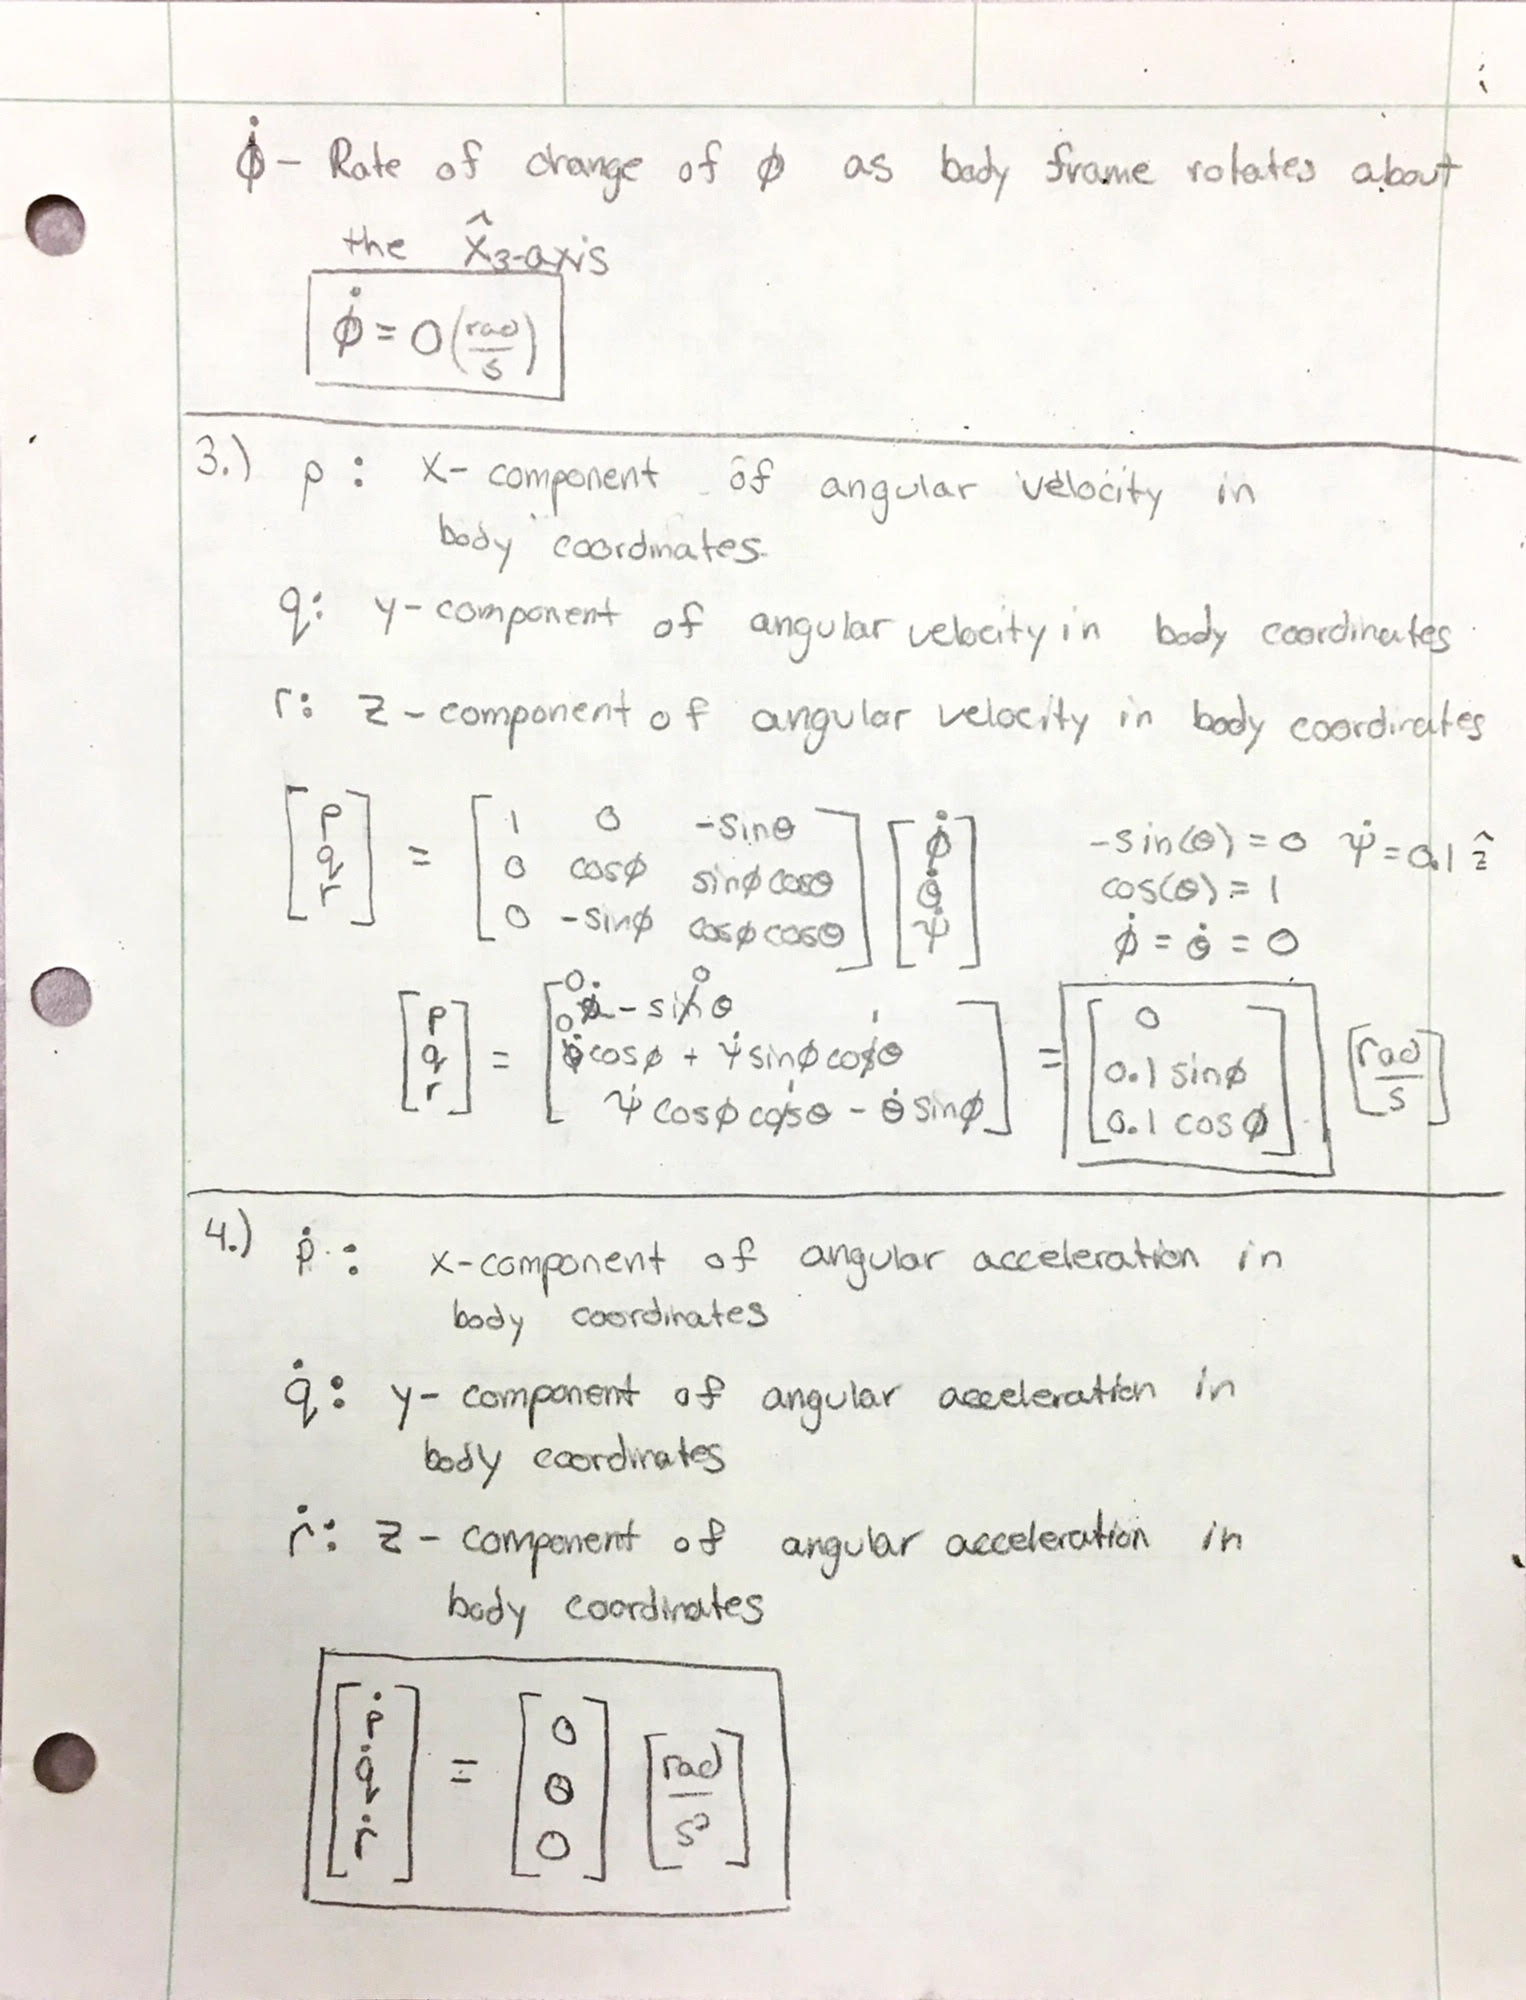 ϕ̇ – Rate of change of ϕ as body frame rotates about
the x̂₃-axis
ϕ̇ = 0 (rad/s)
3.) p : x-component of angular velocity in
body coordinates
q: y-component of angular velocity in body coordinates
r: z-component of angular velocity in body coordinates
[p q r] = [1 0 -sinθ; 0 cosϕ sinϕcosθ; 0 -sinϕ cosϕcosθ] [ϕ̇ θ̇ ψ̇] -sin(θ) = 0 ψ̇ = 0.1 ẑ
cos(θ) = 1
ϕ̇ = θ̇ = 0
[p q r] = [ϕ̇ - sinθ; θ̇cosϕ + ψ̇sinϕcosθ; ψ̇cosϕcosθ - θ̇sinϕ] = [0; 0.1 sinϕ; 0.1 cosϕ] [rad/s]
4.) ṗ : x-component of angular acceleration in
body coordinates
q̇: y-component of angular acceleration in
body coordinates
ṙ: z-component of angular acceleration in
body coordinates
[ṗ q̇ ṙ] = [0 0 0] [rad/s²]